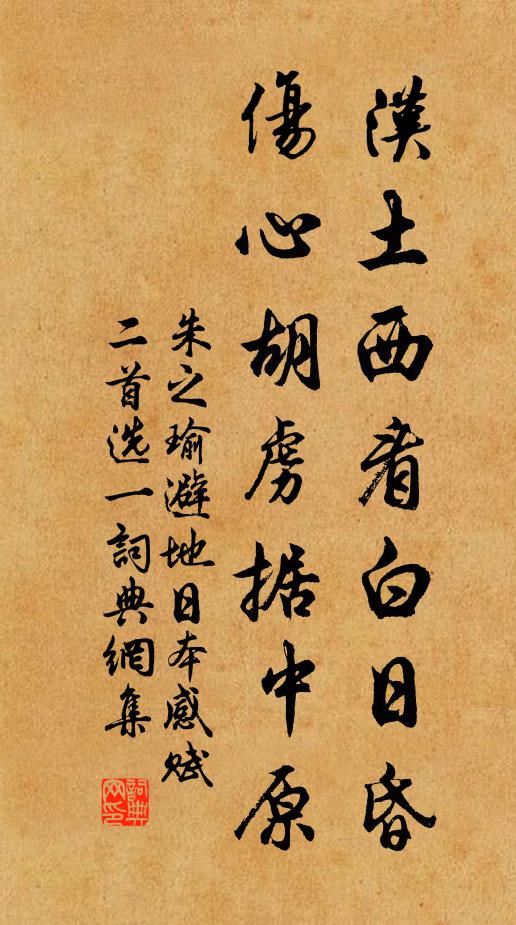 漢土西看白日昏
傷心胡虜据中原
朱之瑜避地日本感賦
二首选一詞典網集
詞典網印